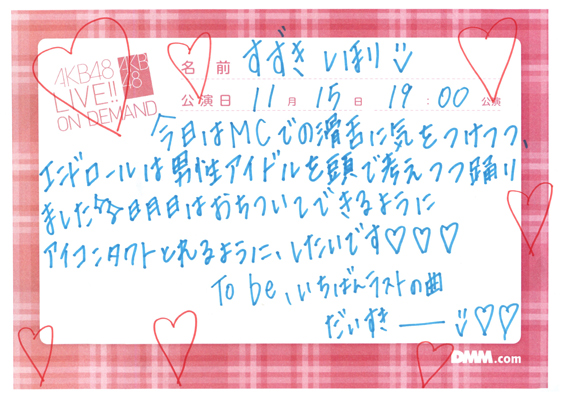 AKB48
LIVE!!
ON DEMAND
AKB
48
名前 すずき いほり
公演日 11月 15日 19:00 公演
今日はMCでの滑舌に気をつけつつ、
エンドロールは男性アイドルを頭で考えつつ踊り
ました 今日明日はおちついてできるように
アイコンタクトとれるように、したいです♡♡♡
To be、いちばんラストの曲
だいすき――♡♡
DMM.com